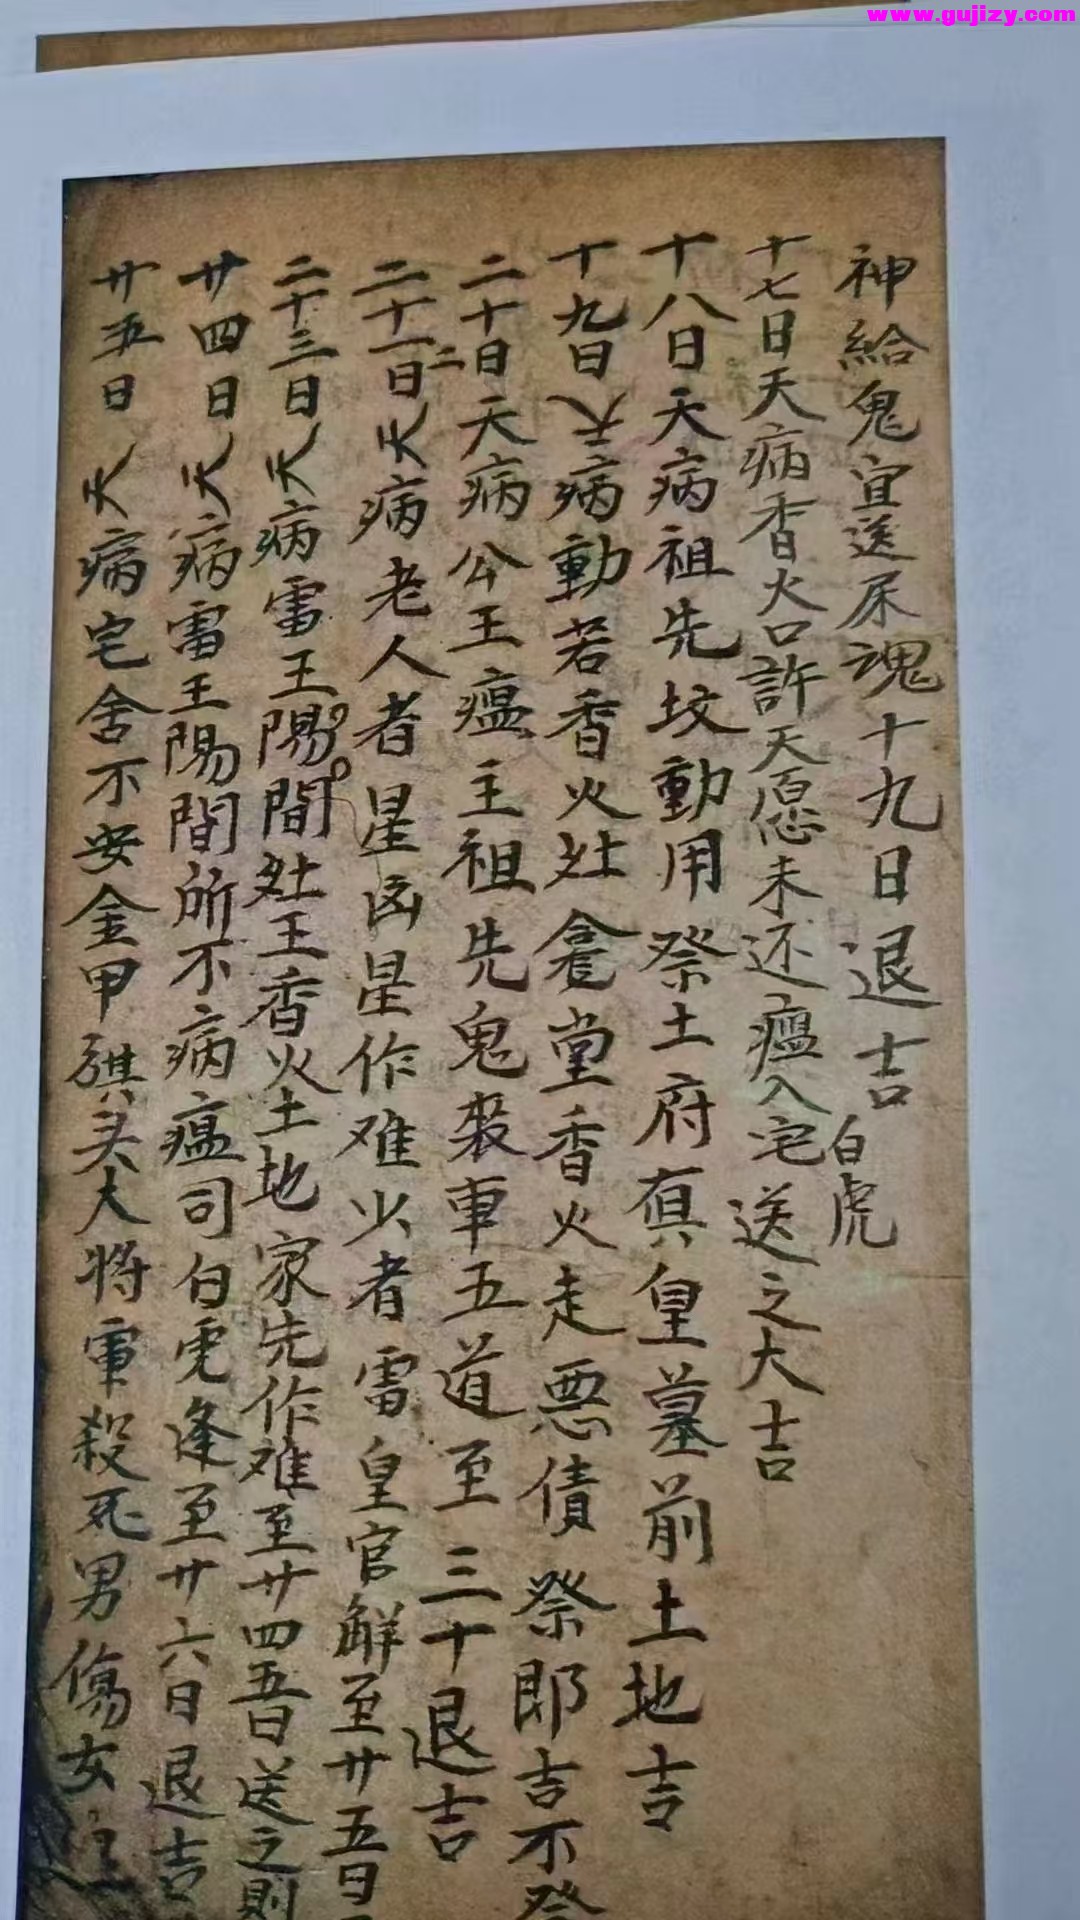 www.gujizy.com
神給鬼宜送床魂十九日退吉白虎
十七日天病香火口許天愿未还瘟入宅送之大吉
十八日天病祖先坟動用祭土府皇墓前土地吉
十九日病動若香火灶堂香火走惡債祭即吉不祭
二十日天病公王瘟主祖先鬼裝車五道至三十退吉
二十一日二病老人者星凶星作难少者雷皇官解至廿五日
二十三日病雷王陽間灶王香火土地家先作难至廿四五日送之則
廿四日病雷王陽間所不病瘟司白虎逢至廿六日退吉
廿五日病宅舍不安金甲旗头大将軍殺死男傷女